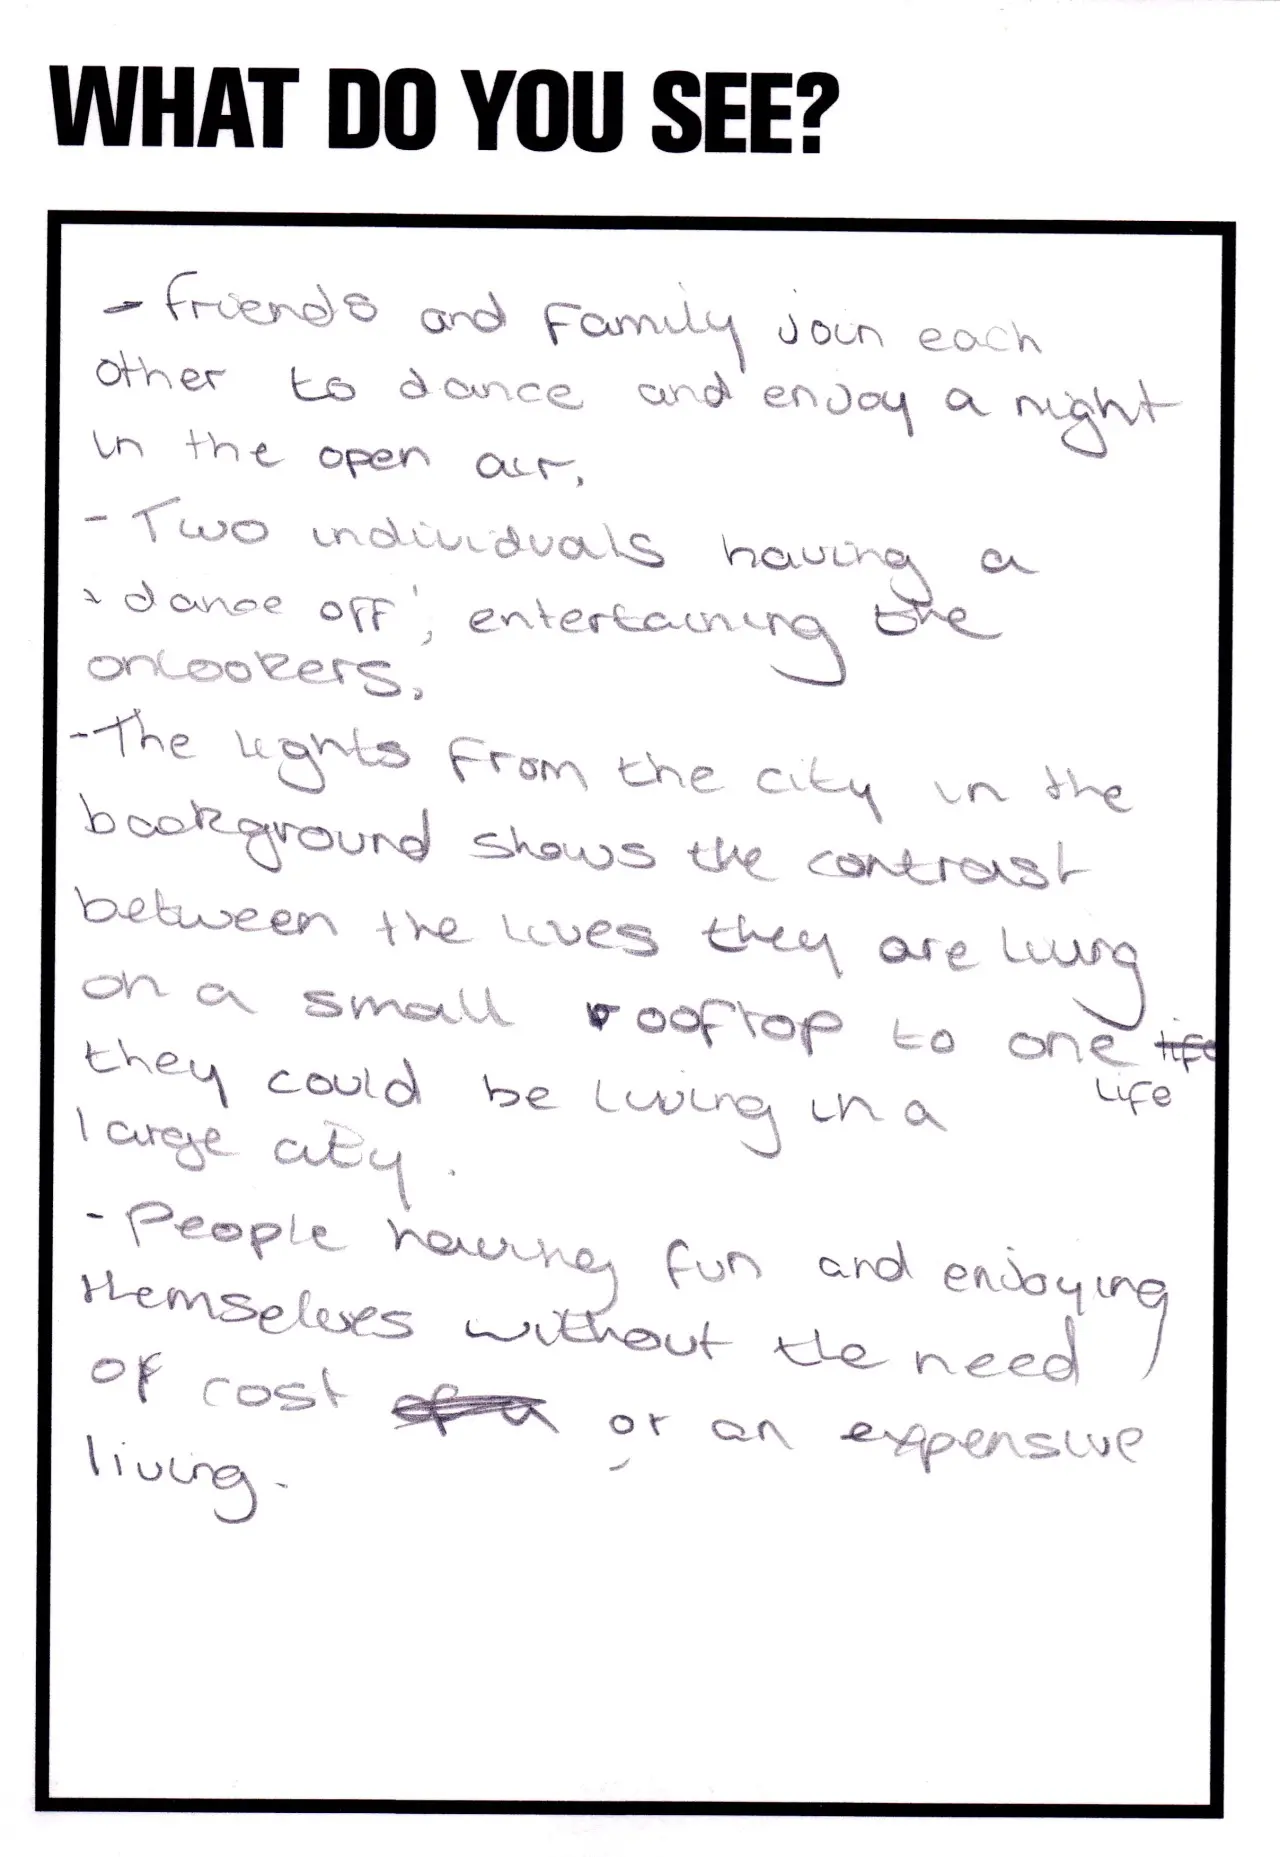 WHAT DO YOU SEE?
- Friends and Family join each
other to dance and enjoy a night
in the open air.
- Two individuals having a
'dance off', entertaining the
onlookers.
- The lights from the city in the
background shows the contrast
between the lives they are living
on a small rooftop to one life
life
they could be living in a
large city.
- People having fun and enjoying
themselves without the need
of cost of a or an expensive
living.